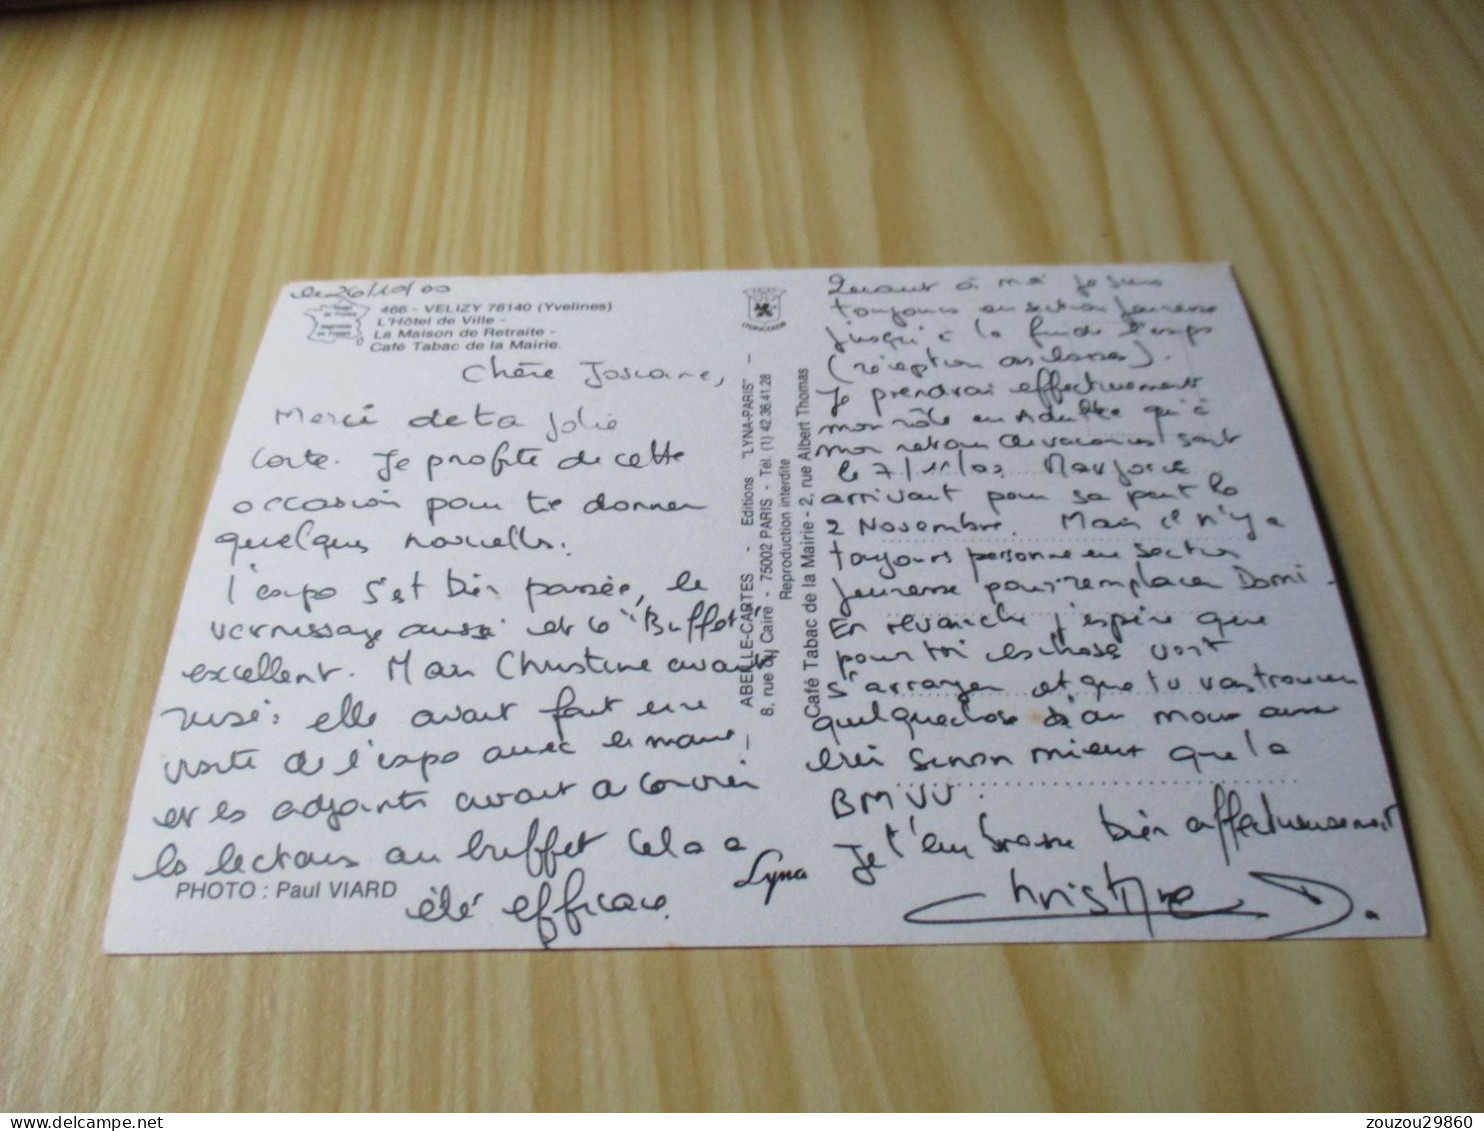 le 26/10/00
466 - VELIZY 78140 (Yvelines)
L'Hôtel de Ville -
La Maison de Retraite -
Café Tabac de la Mairie.
Chère Josiane,
Merci de ta jolie
carte. Je profite de cette
occasion pour te donner
quelques nouvelles.
L'expo s'est bien passée, le
vernissage aussi et le "Buffet"
excellent. Mais Christine avait
rusé : elle avait fait une
visite de l'expo avec le maire
et les adjoints avant d'ouvrir
les lecteurs au buffet Cela a
été efficace.
PHOTO : Paul VIARD
ABEILLE-CARTES - Editions "LYNA-PARIS" -
8, rue du Caire - 75002 PARIS - Tél. (1) 42.36.41.28
Reproduction interdite
Café Tabac de la Mairie - 2, rue Albert Thomas
Lyna
Quant à moi je suis
toujours en section Jeunesse
jusqu'à la fin de l'expo
(réception des classes).
Je prendrai effectivement
mon rôle en Adulte qu'à
mon retour de vacances soit
le 7/11/00 Marjorie
arrivant pour sa part le
2 Novembre. Mais il n'y a
toujours personne en section
Jeunesse pour remplacer Domi.
En revanche j'espère que
pour toi les choses vont
s'arranger et que tu vas trouver
quelque chose
sinon mieux que la
BMVV.
Je t'embrasse bien affectueusement
Christine D.
zouzou29860